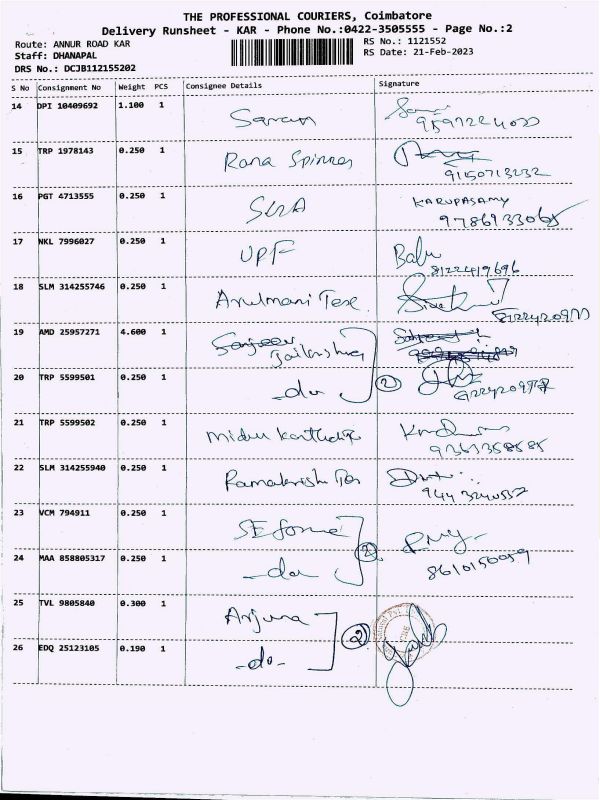 THE PROFESSIONAL COURIERS, Coimbatore
Delivery Runsheet - KAR - Phone No.:0422-3505555 - Page No.:2
Route: ANNUR ROAD KAR
Staff: DHANAPAL
DRS No.: DCJB112155202
RS No.: 1121552
RS Date: 21-Feb-2023
S No Consignment No Weight PCS Consignee Details Signature
14 DPI 10409692 1.100 1 Saravan
15 TRP 1978143 0.250 1 Rana Spinner 9150713232
16 PGT 4713555 0.250 1 KARUPASAMY
9786933065
17 NKL 7996027 0.250 1 UPF Babu
8122419696
18 SLM 314255746 0.250 1 Arulmani Tex
19 AMD 25957271 4.600 1
20 TRP 5599501 0.250 1 -do- 2
21 TRP 5599502 0.250 1 9361358585
22 SLM 314255940 0.250 1 Ramakrish Tex
23 VCM 794911 0.250 1
24 MAA 858805317 0.250 1 -do- 2 8610150059
25 TVL 9805840 0.300 1 Arjuna
26 EDQ 25123105 0.190 1 -do- 2